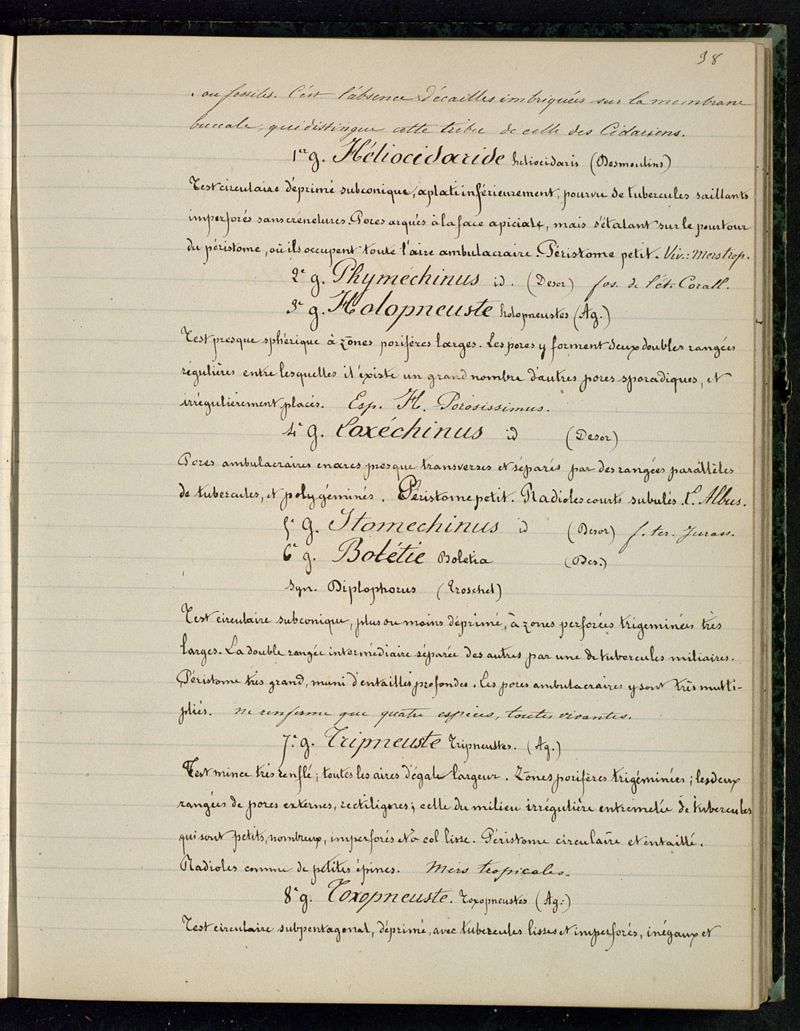 98
ou fossiles. C'est l'absence d'écailles imbriquées sur la membrane
buccale, qui distingue cette tribu de celle des Cidariens.
1er g. Héliocidaride heliocidaris (Desmoulins)
Test circulaire déprimé subconique, aplati inférieurement, pourvu de tubercules saillants
imperforés sans crenelures. Pores arqués à la face apiciale, mais s'étalant sur le pourtour
du péristome, où ils occupent toute l'aire ambulacraire. Péristome petit. Viv: Mers trop.
2e g. Phymechinus id. (Desor) fos. de l'ét. Corall.
3e g. Holopneuste holopneustes (Ag.)
Test presque sphérique à zônes porifères larges. Les pores y forment deux doubles rangées
régulières entre lesquelles il existe un grand nombre d'autres pores sporadiques, et
irrégulièrement placés. Esp. H. Porosissimus.
4e g. Loxéchinus id (Desor)
Pores ambulacraires en arcs presque transverses et séparés par des rangées parallèles
de tubercules, et polygéminés. Péristome petit. Radioles courts subulés. L. Albus.
5e g. Stomechinus id (Desor) f. ter. Juras.
6e g. Bolétie Boletia (Des.)
Syn. Diplophorus (Troschel)
Test circulaire subconique, plus ou moins déprimé, à zones perforées trigeminées très
larges. La double rangée intermédiaire séparée des autres par une de tubercules miliaires.
Péristome très grand, muni d'entailles profondes. Les pores ambulacraires y sont très multi-
pliés. ne renferme que quatre espèces, toutes vivantes.
7e g. Tripneuste Tripneustes. (Ag.)
Test mince très renflé; toutes les aires d'égale largeur. Zônes porifères trigéminées; les deux
rangées de pores externes, rectiligores; celle du milieu irrégulière entremelée de tubercules
qui sont petits, nombreux, imperforés et à col lisse. Péristome circulaire et entaillé.
Radioles comme de petites épines. Mers tropicales.
8e g. Toxopneuste. Toxopneustes (Ag.)
Test circulaire subpentagonal, déprimé, avec tubercules lisses et imperforés, inégaux et